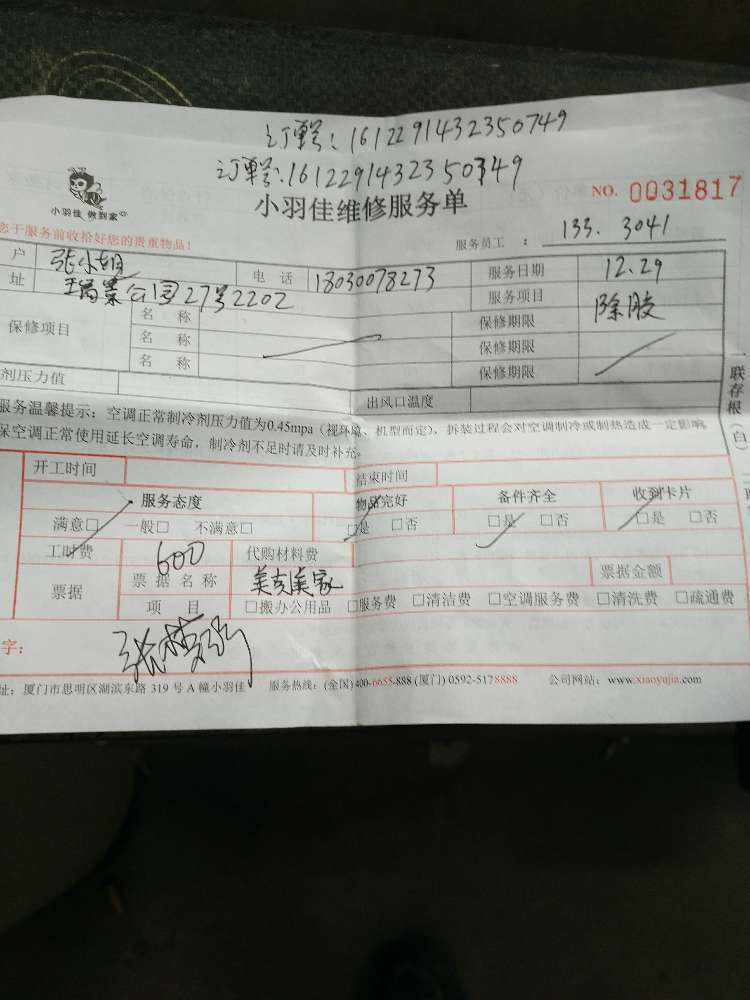 订单号:1612291432350749
订单号:1612291432350749
小羽佳 做到家
小羽佳维修服务单
NO. 0031817
您于服务前收拾好您的贵重物品!
服务员工 : 133. 3041
户 张小姐 电话 18030078273 服务日期 12.29
址 公园27号2202 服务项目 除胶
保修项目 名称 保修期限
名称 保修期限
名称 保修期限
剂压力值 出风口温度
服务温馨提示:空调正常制冷剂压力值为0.45mpa(视环境、机型而定),拆装过程会对空调制冷或制热造成一定影响
保空调正常使用延长空调寿命,制冷剂不足时请及时补充。
一联存根(白)
开工时间 结束时间
服务态度 物品完好 备件齐全 收到卡片
满意□ 一般□ 不满意□ □是 □否 □是 □否 □是 □否
工时费 600 代购材料费
票据 票据名称 美克美家 票据金额
项目 □搬办公用品 □服务费 □清洁费 □空调服务费 □清洗费 □疏通费
字:
址:厦门市思明区湖滨东路 319 号 A 幢小羽佳 服务热线:(全国)400-6655-888 (厦门) 0592-5178888 公司网站:www.xiaoyujia.com